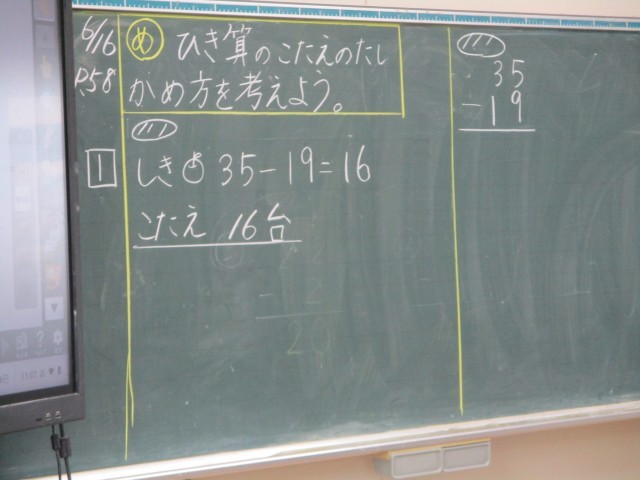 6/16
P.58
め ひき算のこたえのたし
かめ方を考えよう。
1 しき 35-19=16
こたえ 16台
35
-19